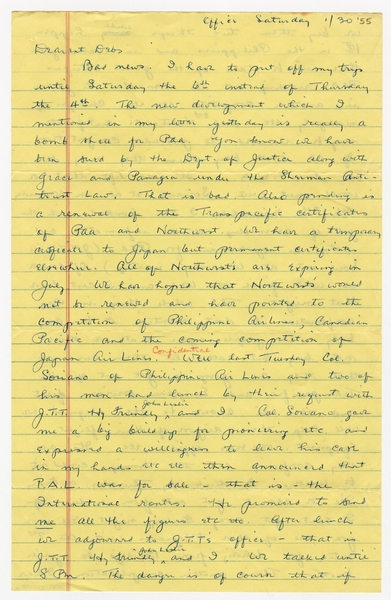 Office Saturday 1/30 '55
Dearest Debs
Bad news. I have to put off my trip
until Saturday the 6th instead of Thursday
the 4th. The new development which I
mentioned in my letter yesterday is really a
bomb shell for Paa. You know we have
been sued by the Dept. of Justice along with
Grace and Panagra under the Sherman Anti-
trust Law. That is bad. Also pending is
a renewal of the Transpacific certificates
of Paa and Northwest. We have a temporary
certificate to Japan but permanent certificates
elsewhere. All of Northwest's are expiring in
July. We have hoped that Northwest's would
not be renewed and have pointed to the
competition of Philippine Airlines, Canadian
Pacific and the coming competition of
Japan Air Lines. Confidential Well last Tuesday Col.
Soriano of Philippine Air Lines and two of
his men had lunch by their request with
J.T.T. Hy Friendly, John Leslie and I. Col. Soriano gave
me a big build up for pioneering etc. and
expressed a willingness to leave his case
in my hands etc etc then announced that
P.A.L. was for sale - that is - the
International routes. He promised to send
me all the figures etc etc. After lunch
we adjourned to J.T.T's office - that is
J.T.T. Hy Friendly, John Leslie and I. We talked until
8 Pm. The danger is of course that if